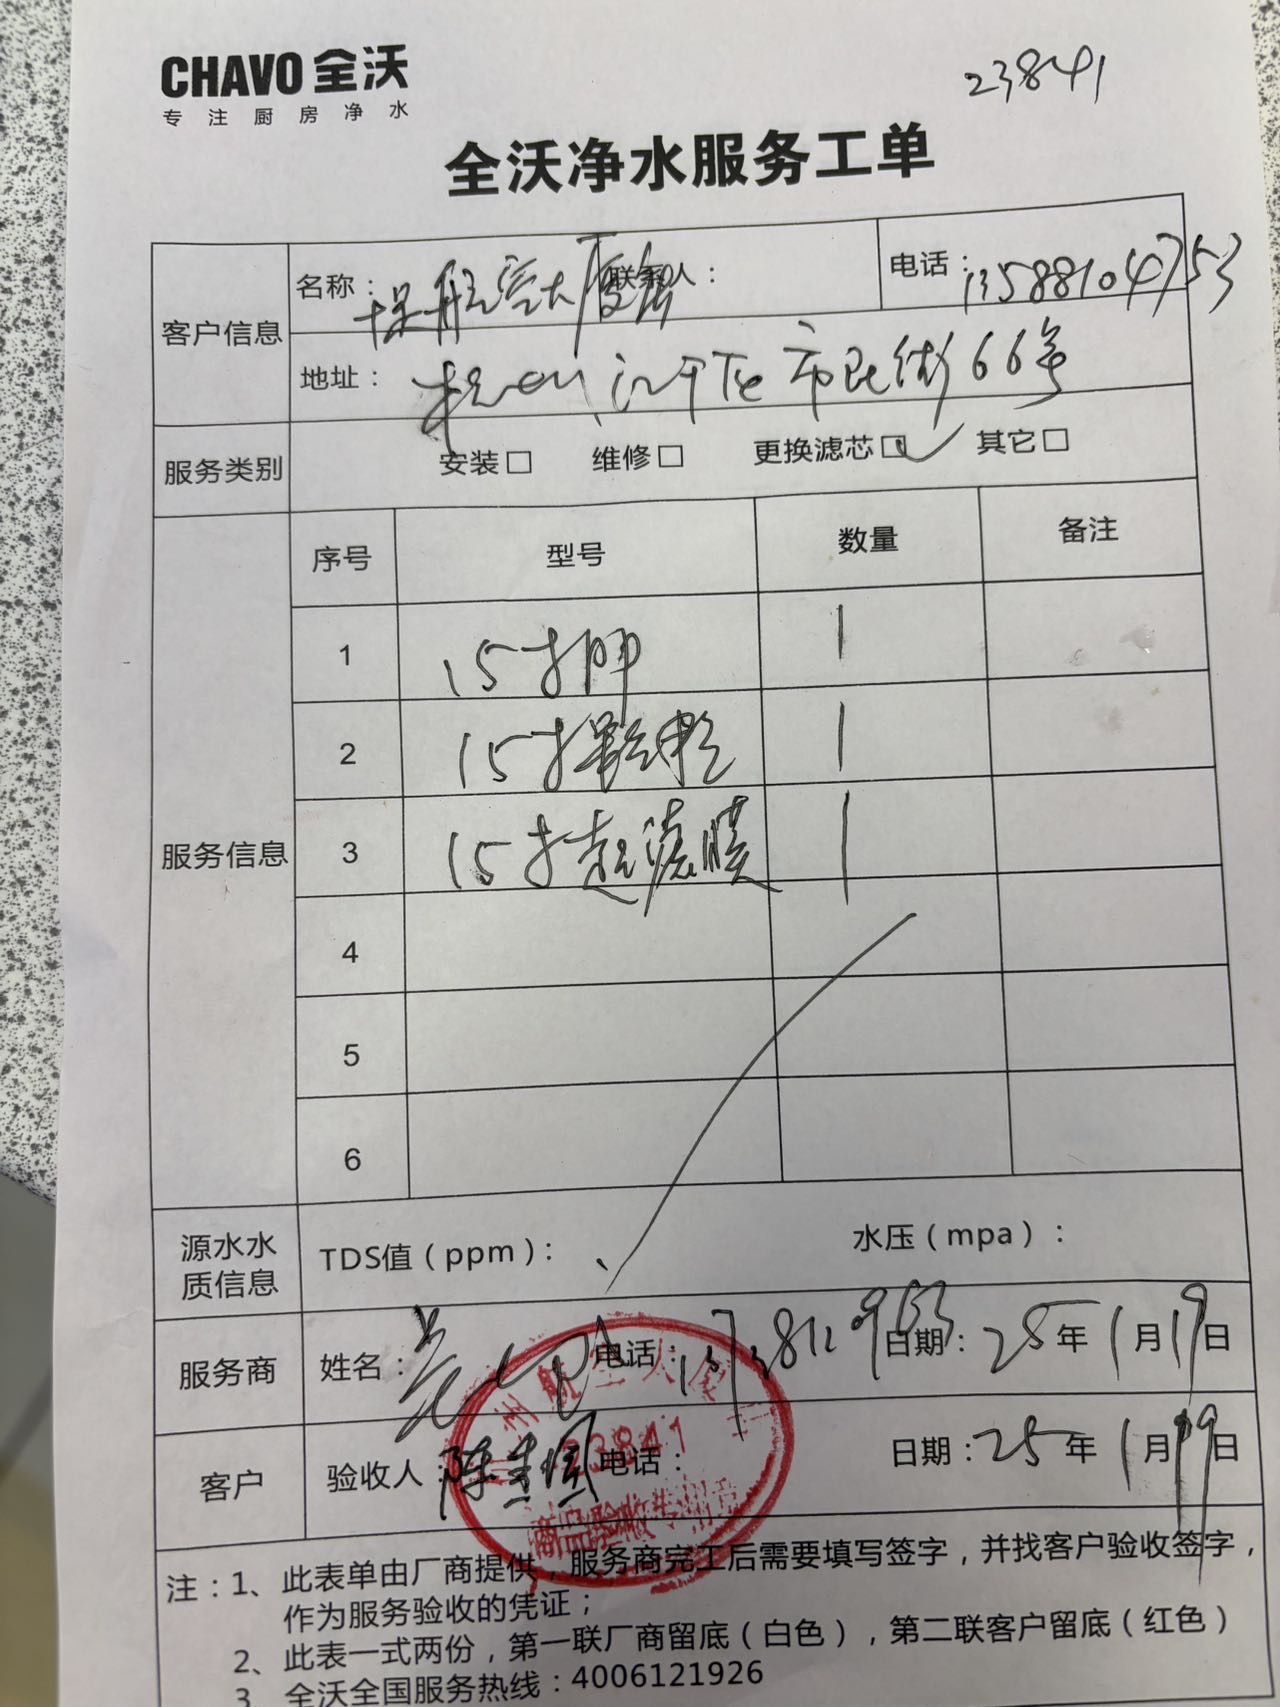 CHAVO 全沃
专注厨房净水
23841
全沃净水服务工单
客户信息
名称： 航空大厦 联系人：
电话：13588104753
地址： 杭州 江干区 市民街66号
服务类别
安装□ 维修□ 更换滤芯□✓ 其它□
服务信息
序号 型号 数量 备注
1 15寸PP 1
2 15寸 1
3 15寸超滤膜 1
4
5
6
源水水质信息
TDS值（ppm）： 水压（mpa）：
服务商 姓名： 电话： 日期：25年1月19日
客户 验收人：陈 电话： 日期：25年1月19日
州航空大厦
23841
商品验收专用章
注：1、此表单由厂商提供，服务商完工后需要填写签字，并找客户验收签字，
作为服务验收的凭证；
2、此表一式两份，第一联厂商留底（白色），第二联客户留底（红色）
3、全沃全国服务热线：4006121926